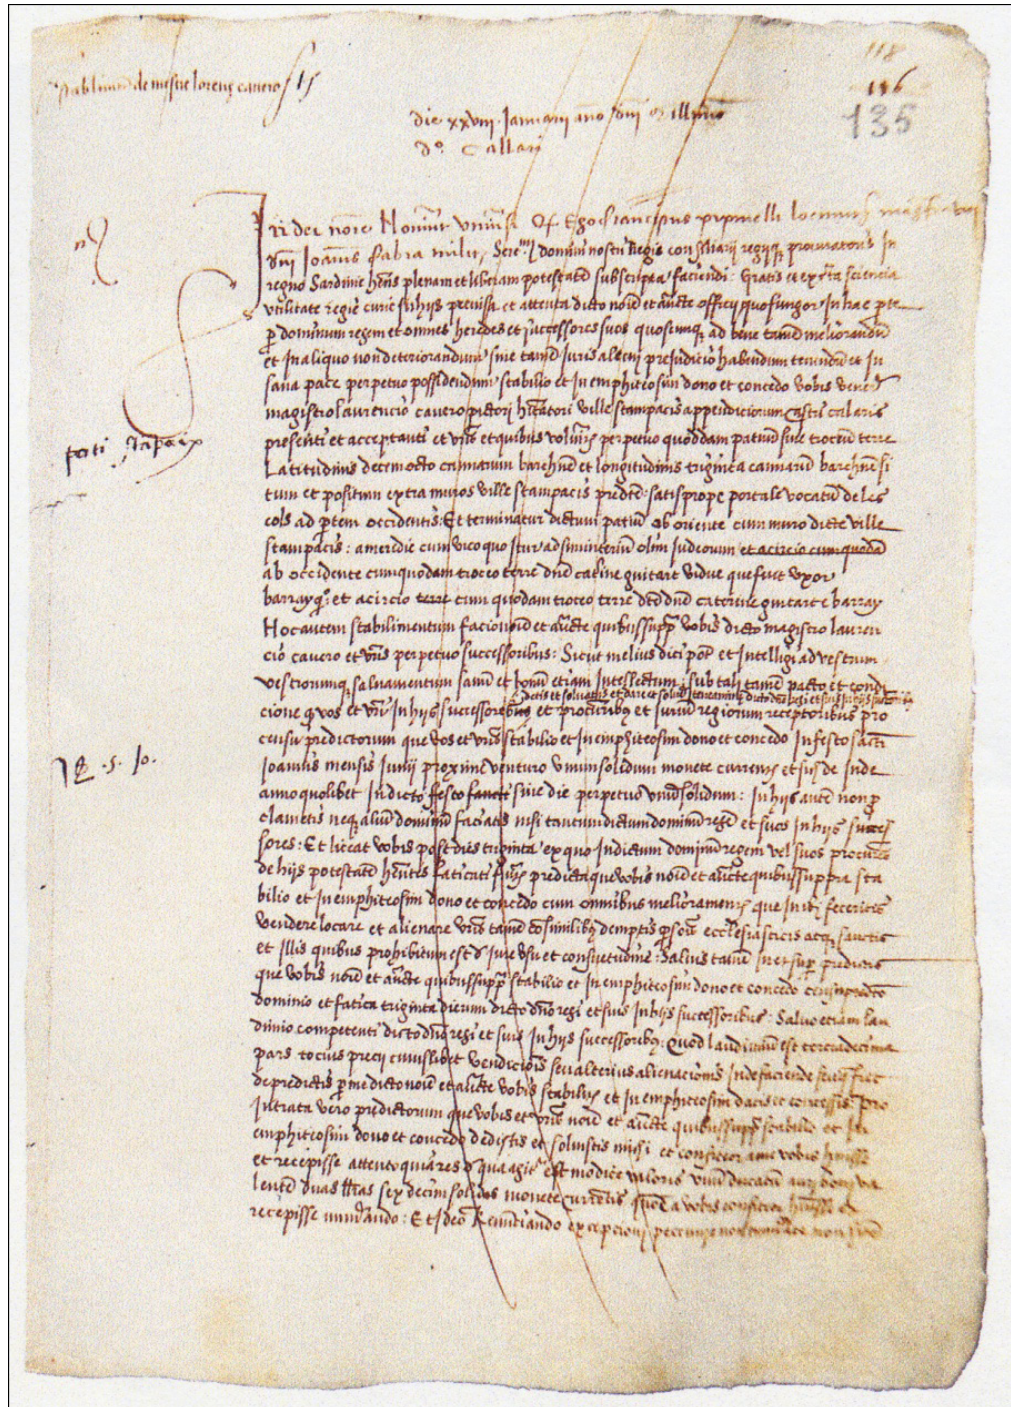 118
116
135
stabliment de mestre lorenz cavero s 15
die xxviii Januarii año
Callari
In dei noīe Noverint universi Qd Ego Franciscus
dñi Joannis fabra militis Sere.mi domini nostri Regis consiliarii regiiq procuratoris in
regno Sardinie hñs plenam et liberam potestatē subscripta faciendi : Gratis et ex certa sciencia
utilitate regie curie in hiis pensata et attenta dicto noīe et aucte officii quo fungor in hac pte
p dominum regem et omnes heredes et successores suos quoscunq ad bene tamē meliorandū
et in aliquo non deteriorandum sine tamē juris alieni prejudicio habendum tenendū et in
sana pace perpetuo possidendum stabilio et in emphiteosim dono et concedo vobis vener.
magistro laurencio cavero pictori hitatori ville stampacis appendiciorum castri calaris
presenti et acceptanti et vris et quibus volueris perpetuo quoddam patuū sive troceū terre
Latitudinis decem octo cannarum barchnē et longitudinis triginta cannarū barchnē si
tum et positum extra muros ville stampacis predcē satis prope portale vocatū de les
cols ad ptem occidentis : Et terminatur dictum patiū ab oriente cum muro dicte ville
stampacis : a meridie cum vico quo itur ad siminteriū olim judeorum et a circio cum quodā
ab occidente cum quodam troceo terre dnē catline guitart vidue que fuit uxor
barray q : et a circio terre cum quodam troceo terre dcē dnē caterine guitart e barray
Hoc autem stabilimentum facio noīe et aucte quibus supp vobis dicto magistro lauren
cio cavero et vris perpetuo successoribus : Sicut melius dici pōt et intelligi ad vestrum
vestrorumq salvamentum sanū et bonū etiam intellectum : sub tali tamē pacto et condi
cione q vos et vri in hiis successores et procuribq et jurium regiorum receptoribus pro
censu predictorum que vobis et vris stabilio et in emphiteosim dono et concedo in festo sancti
Joannis mensis Junii proxime venturo unum solidum monete currentis et sic de inde
anno quolibet in dicto festo sancti sive die perpetuo unū solidum : In hiis autē non p
clametis neq aliū dominū faciatis nisi tantum dictum dominū regē et suos in hiis succes
sores : Et liceat vobis post dies triginta ex quo in dictum dominū regem vel suos procures
de hiis potestatē hñtes faticati fueritis predicta que vobis noīe et aucte quibus suppra sta
bilio et in emphiteosim dono et concedo cum omnibus melioramentis que inibi feceritis
vendere locare et alienare vris tamē cosimilibq demptis psonis ecclesiasticis atq sanctis
et illis quibus prohibitum est de jure usu et consuetudine : Salvis tamē in et sup predictis
que vobis noīe et aucte quibus supp stabilio et in emphiteosim dono et concedo censu predcto
dominio et fatica triginta dierum dicto dño regi et suis in hiis successoribus : Salvo etiam lau
dimio competenti dicto dño regi et suis in hiis successoribq : Quod laudimiū est tercia decima
pars tocius precii cuiuslibet vendicionis seu alterius alienacionis inde faciende
de predictis p me dicto noīe et aucte vobis stabilitis et in emphiteosim datis et concessis : Pro
intrata vero predictorum que vobis et vris noīe et aucte quibus supp stabilio et in
emphiteosim dono et concedo dedistis et solvistis mihi et confiteor a vobis huisse
et recepisse attento quia res de qua agitr est modice valoris unū ducatū auri boni va
lentē duas llras sex decim solidos monete currentis quos a vobis confiteor huisse et
recepisse numerando : Et ideo Renunciando excepcioni peccunie non numerate
porti stapaix
s. Jo.